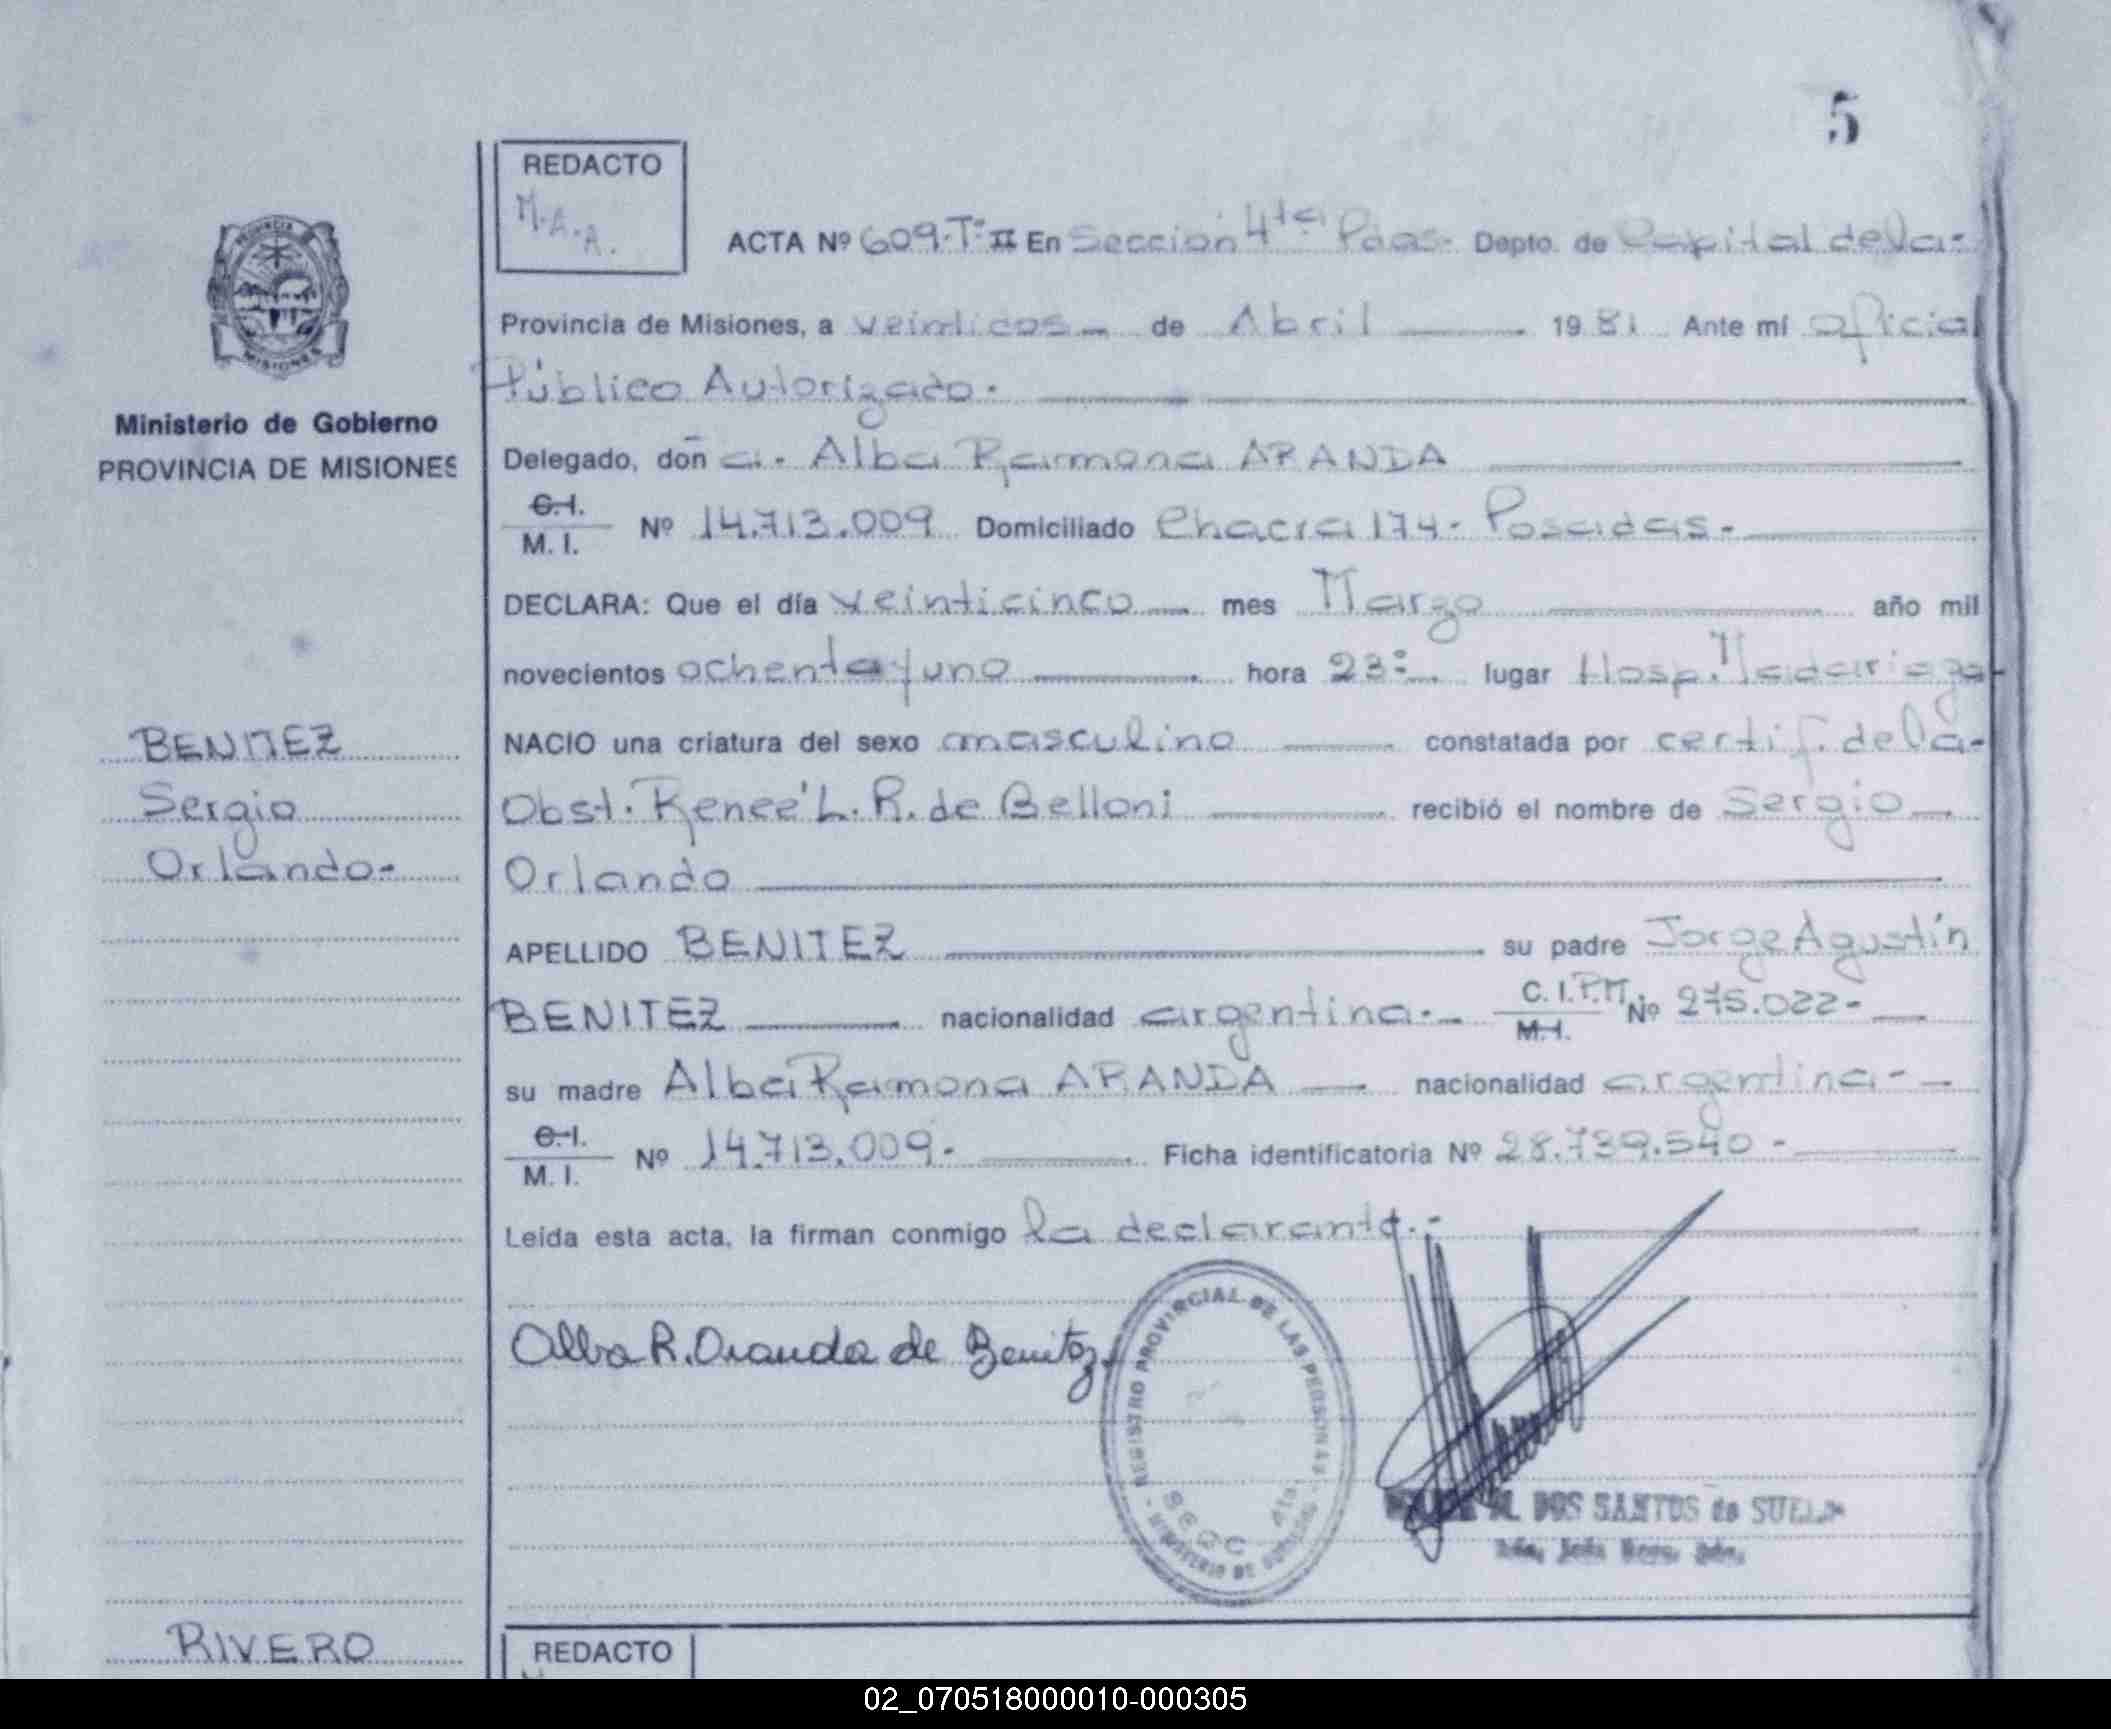 5
REDACTO
M.A.A.
ACTA Nº 609-Tº II En Sección 4ta Pdas. Depto. de Capital de la-
Provincia de Misiones, a veintidos de Abril 1981 Ante mí Oficial
Público Autorizado.
Ministerio de Gobierno
PROVINCIA DE MISIONES
Delegado, doña. Alba Ramona ARANDA
C.I.
M. I. Nº 14.713.009 Domiciliado Chacra 174- Posadas-
DECLARA: Que el día veinticinco mes Marzo año mil
novecientos ochenta y uno hora 23: lugar Hosp. Madariaga-
BENITEZ
Sergio
Orlando-
NACIO una criatura del sexo masculino constatada por certif. de la-
Obst. Reneé L. R. de Belloni recibió el nombre de Sergio
Orlando
APELLIDO BENITEZ su padre Jorge Agustín
BENITEZ nacionalidad argentina.- C. I. P.M. Nº 275.022-
M.I.
su madre Alba Ramona ARANDA nacionalidad argentina-
C.I.
M. I. Nº 14.713.009- Ficha identificatoria Nº 28.739.540-
Leída esta acta, la firman conmigo la declarante.-
Alba R. Aranda de Benitez
REGISTRO PROVINCIAL DE LAS PERSONAS
MINISTERIO DE GOBIERNO
SECC 4ta.
M. DOS SANTOS de SUELA
RIVERO
REDACTO
02_070518000010-000305